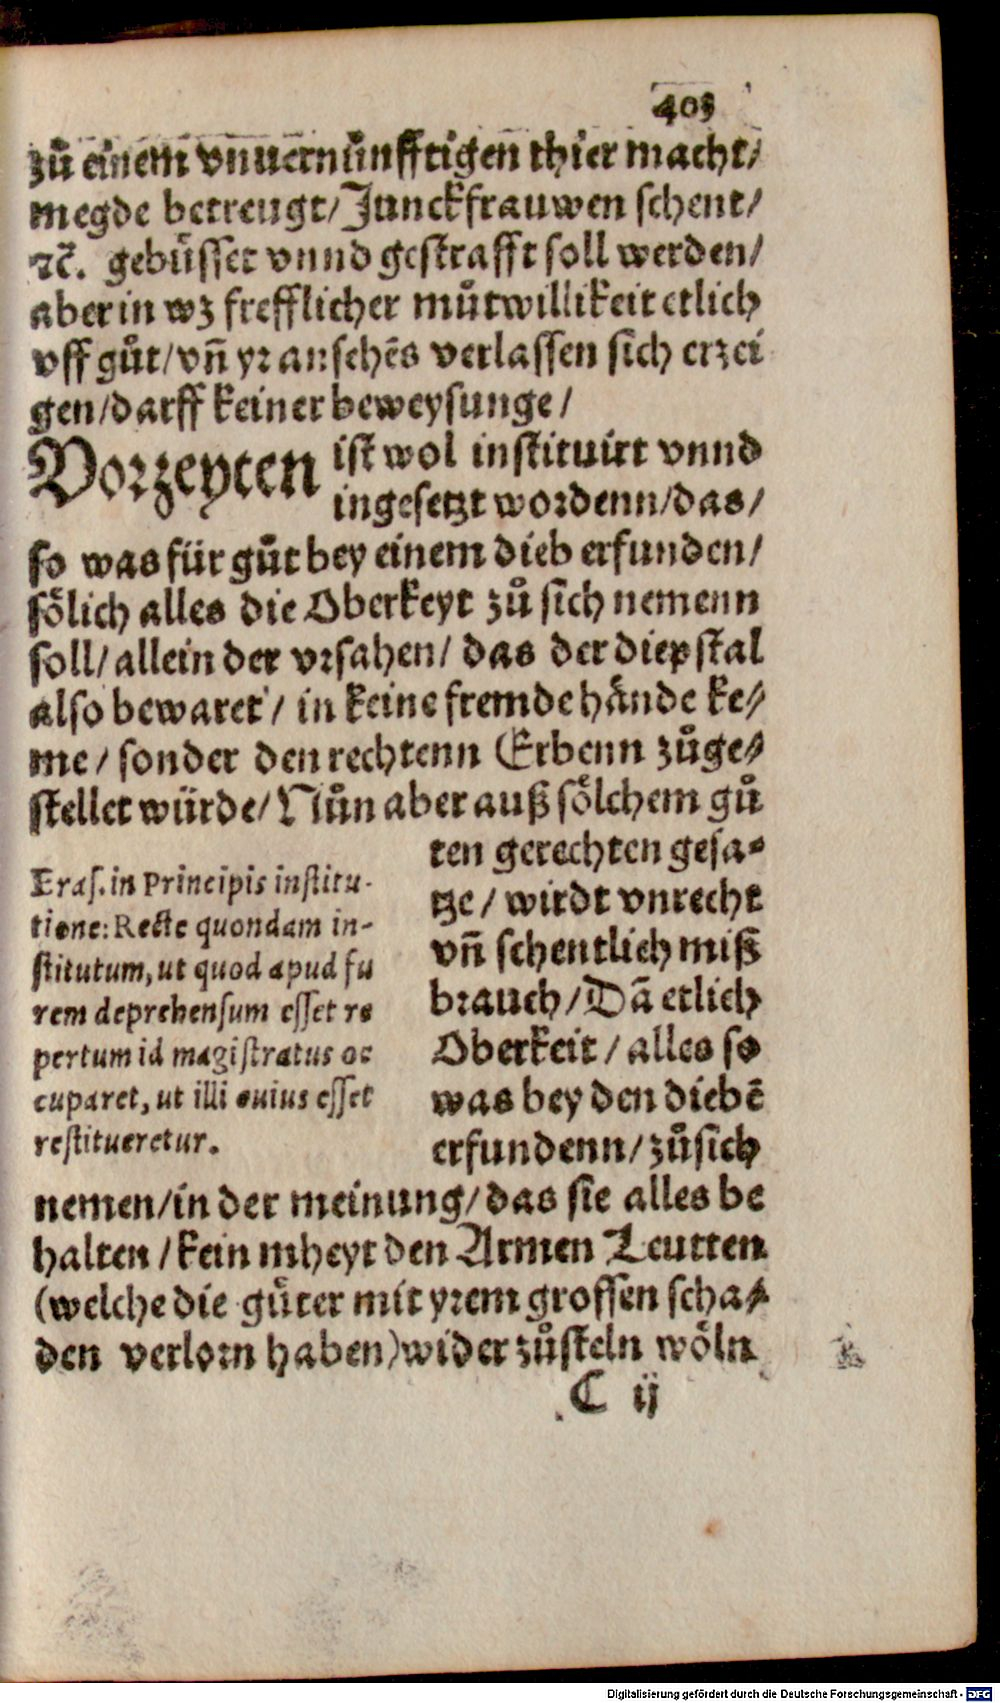 403
zů einem vnuernünfftigen thier macht/
megde betreugt/Junckfrauwen schent/
ꝛc̃. gebüsset vnnd gestrafft soll werden/
aber in wz frefflicher můtwillikeit etlich
vff gůt/vñ yr ansehẽs verlassen sich erzei
gen/darff keiner beweysunge/
Vorzeyten ist wol instituirt vnnd
ingesetzt wordenn/das/
so was für gůt bey einem dieb erfunden/
sölich alles die Oberkeyt zů sich nemenn
soll/allein der vrsahen/ das der diepstal
also bewaret/ in keine fremde hände ke⸗
me/ sonder den rechtenn Erbenn zůge⸗
stellet würde/Nůn aber auß sölchem gů
ten gerechten gesa⸗
tze/ wirdt vnrecht
vñ schentlich miß
brauch/Dã etlich
Oberkeit/alles so
was bey den diebẽ
erfundenn/zůsich
Eras. in Principis institu-
tione: Recte quondam in-
stitutum, ut quod apud fu
rem deprehensum esset re
pertum id magistratus oc
cuparet, ut illi cuius esset
restitueretur.
nemen/in der meinung/das sie alles be
halten/kein mheyt den Armen Leutten
(welche die gůter mit yrem grossen scha⸗
den verlorn haben)wider zůsteln wöln
C ij
Digitalisierung gefördert durch die Deutsche Forschungsgemeinschaft - DFG